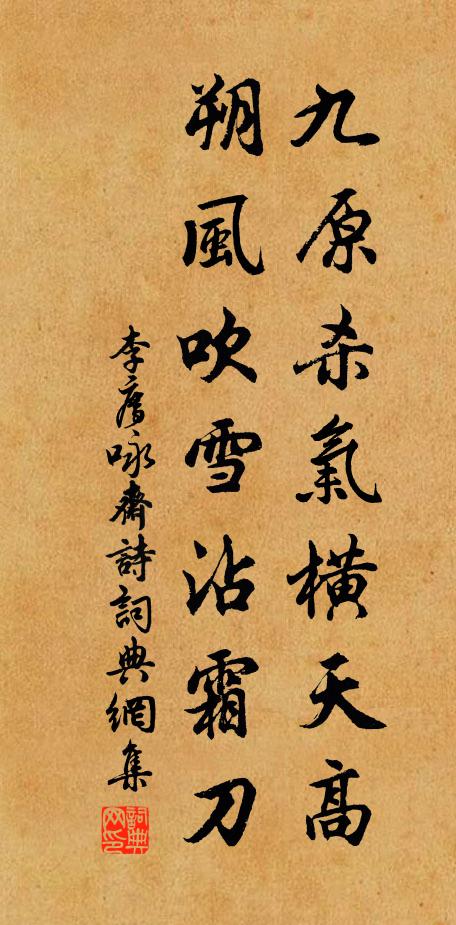 九原杀氣横天髙
朔風吹雪沾霜刀
李咏齋詩詞典網集
詞典网印